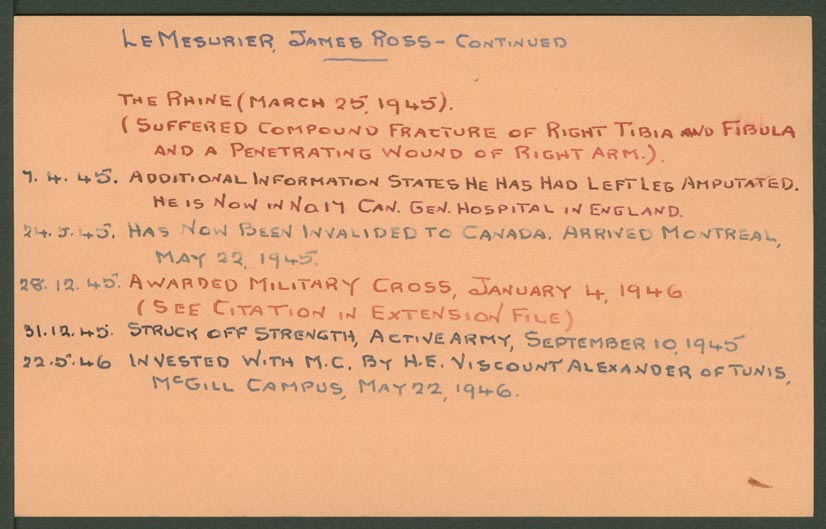 LeMesurier, James Ross - Continued
The Rhine (March 25, 1945).
(Suffered compound fracture of right tibia and fibula
and a penetrating wound of right arm.).
7.4.45. Additional information states he has had left leg amputated.
He is now in No 17 Can. Gen. Hospital in England.
24.5.45. Has now been invalided to Canada. Arrived Montreal,
May 22, 1945.
28.12.45. Awarded Military Cross, January 4, 1946
(See citation in extension file)
31.12.45. Struck off strength, Active Army, September 10, 1945
22.5.46 Invested with M.C. by H.E. Viscount Alexander of Tunis,
McGill Campus, May 22, 1946.